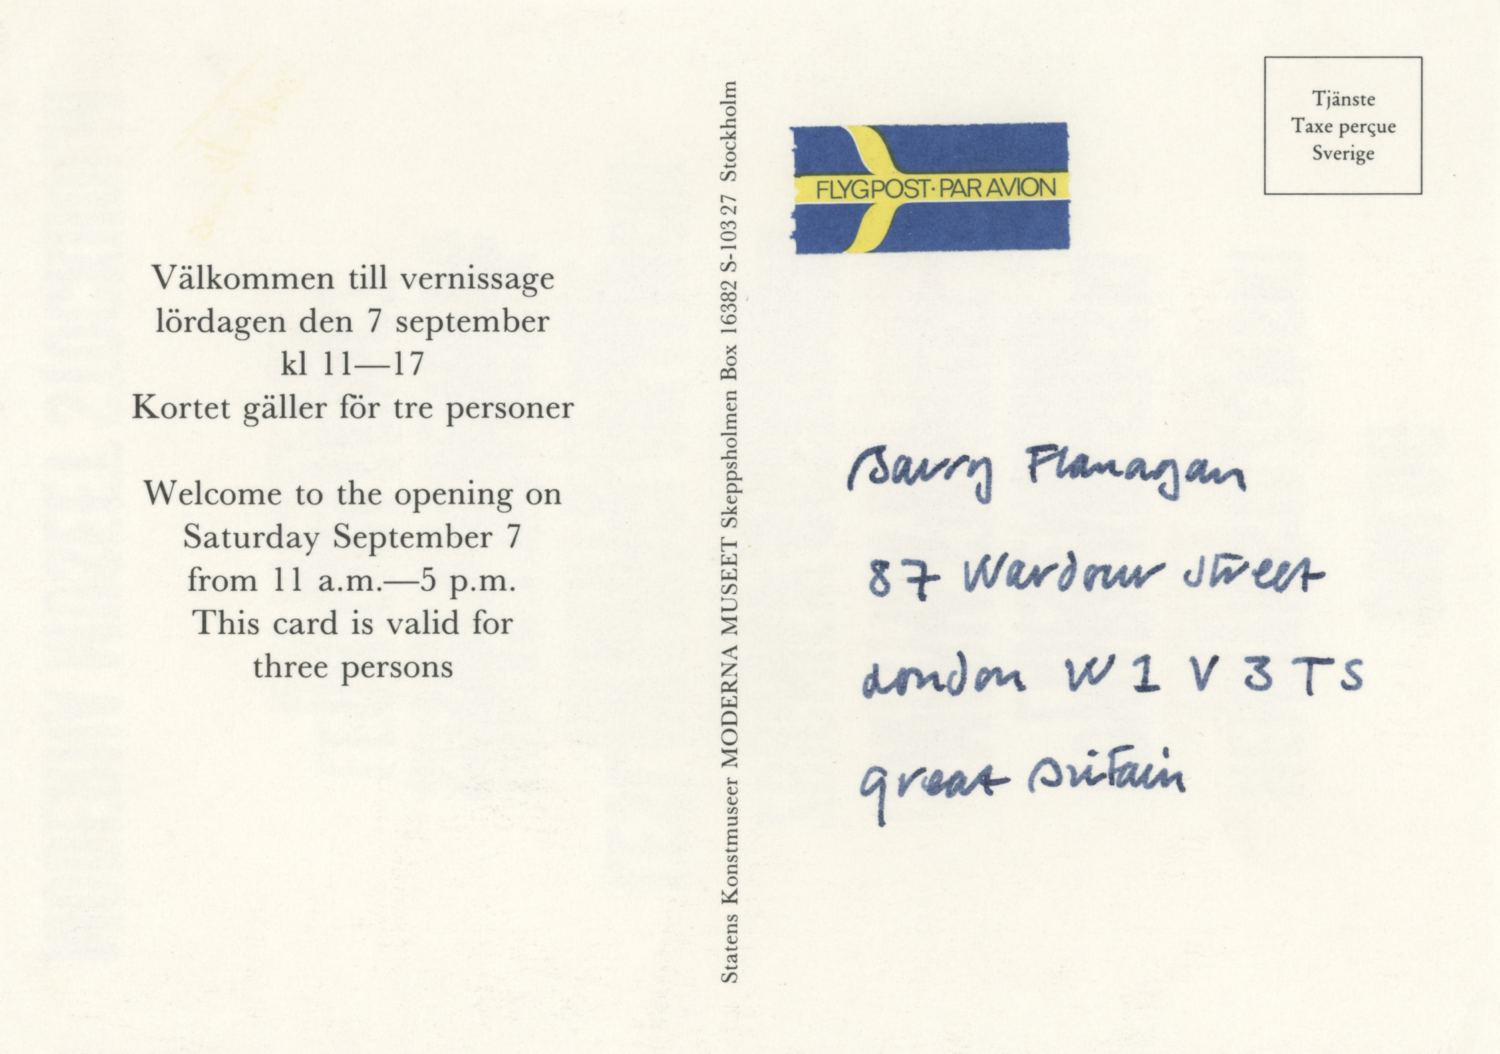 Välkommen till vernissage
lördagen den 7 september
kl 11—17
Kortet gäller för tre personer
Welcome to the opening on
Saturday September 7
from 11 a.m.—5 p.m.
This card is valid for
three persons
Statens Konstmuseer MODERNA MUSEET Skeppsholmen Box 16382 S-103 27 Stockholm
FLYGPOST·PAR AVION
Tjänste
Taxe perçue
Sverige
Barry Flanagan
87 Wardour Street
London W 1 V 3 T S
great Britain